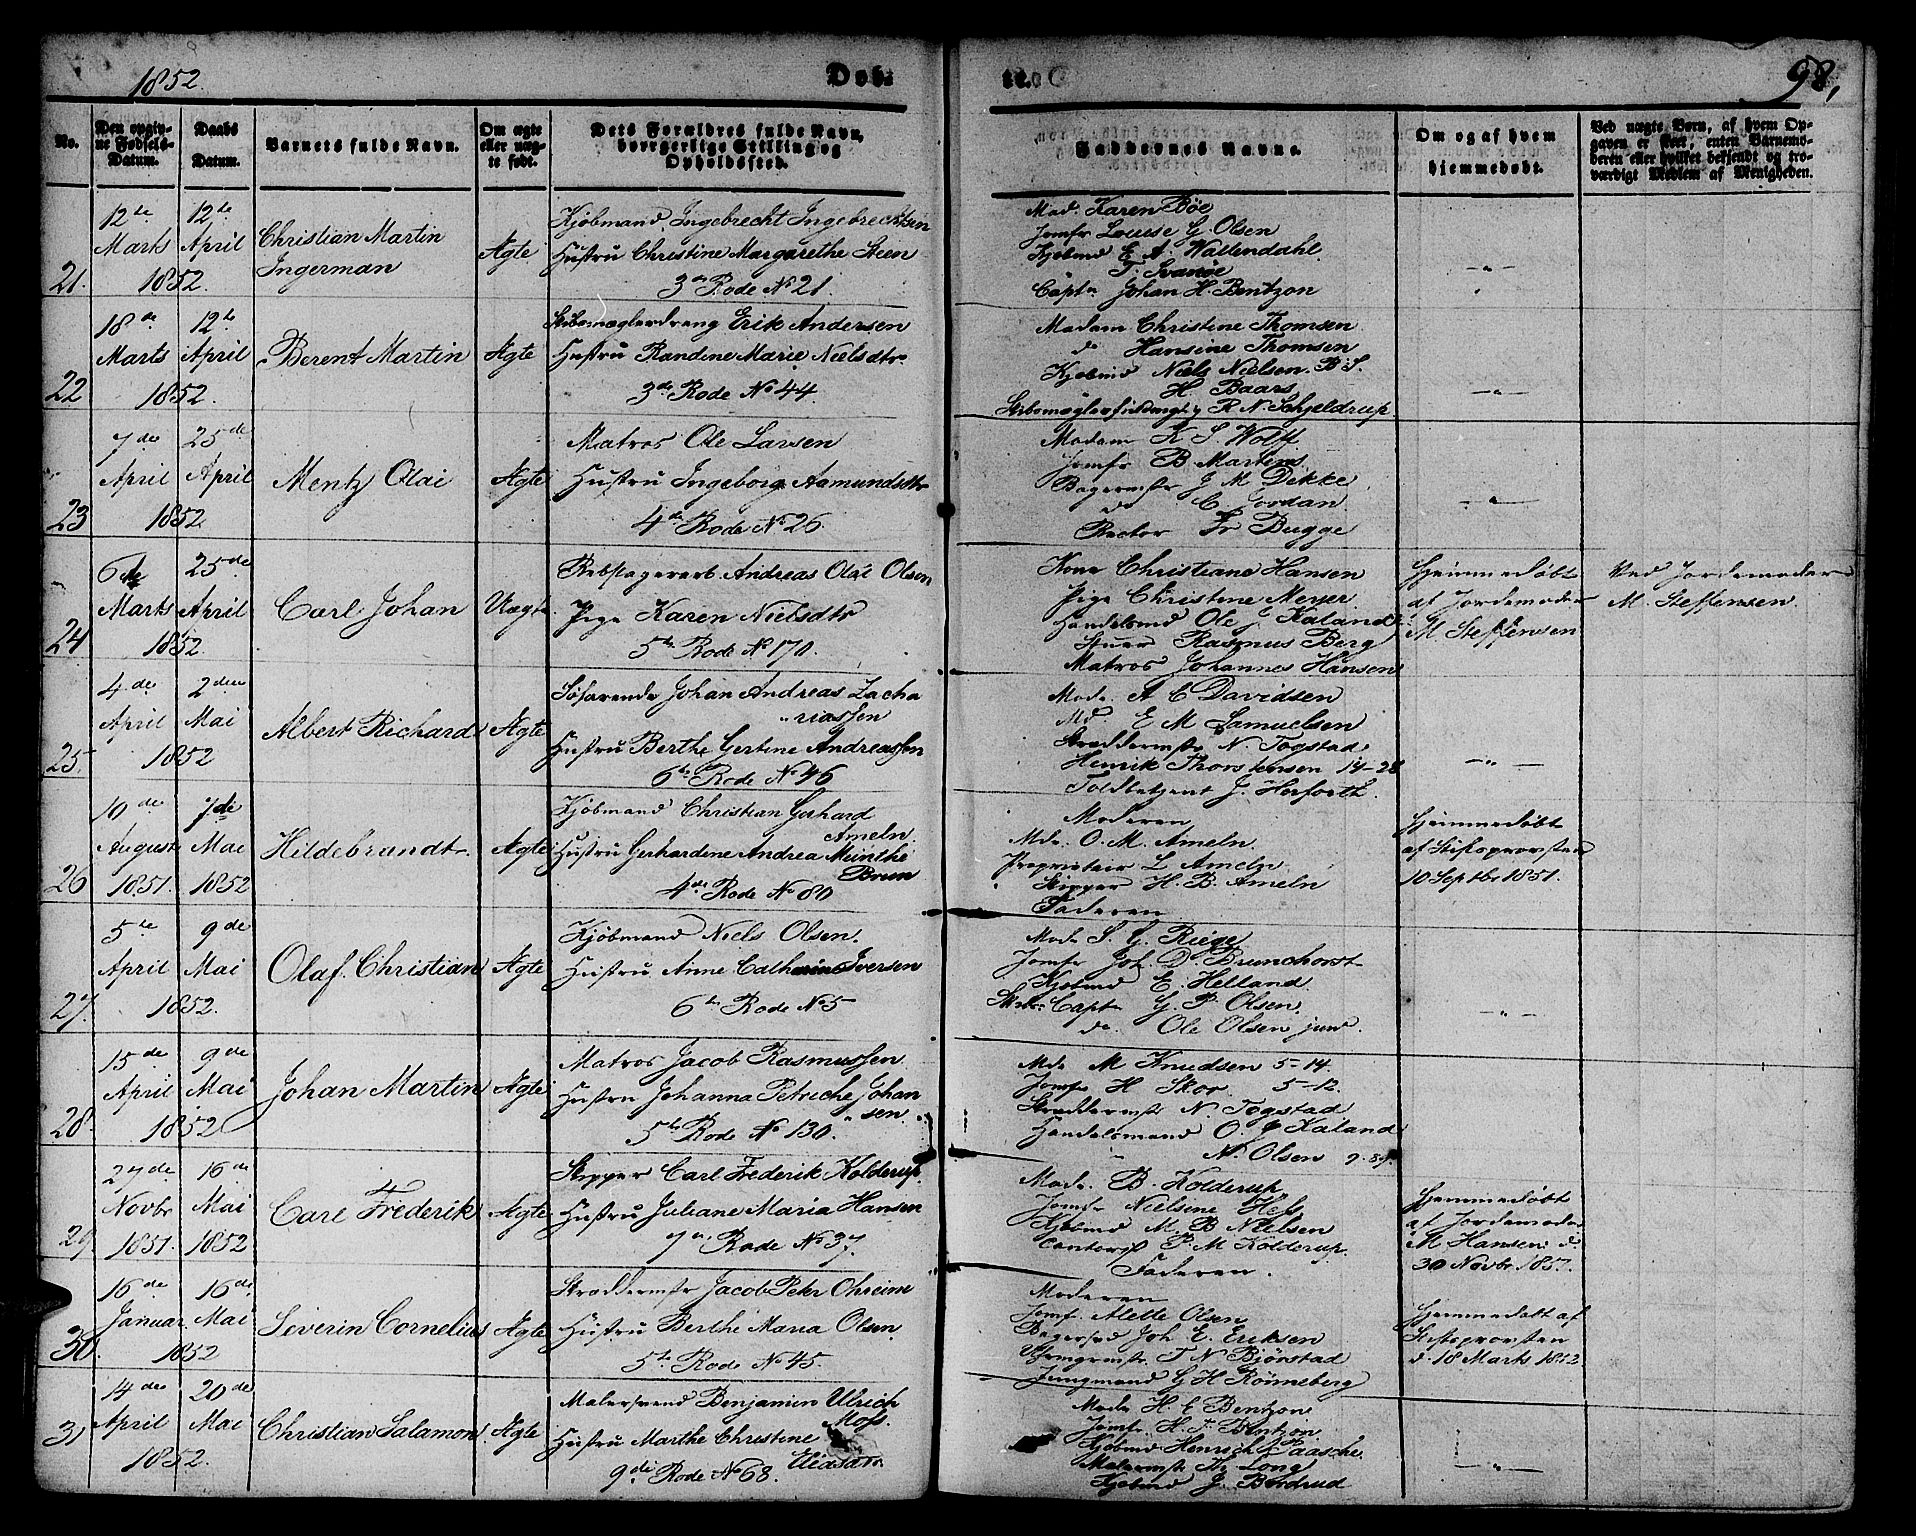 1852.
Døb-
te.
98,
No.
Den opgiv-
ne Fødsels-
Datum.
Daabs
Datum.
Barnets fulde Navn.
Om ægte
eller uæg-
te født.
Dets Forældres fulde Navn,
borgerlige Stilling og
Opholdssted.
Faddernes Navne.
Om og af hvem
hjemmedøbt.
Ved uægte Børn, af hvem Op-
gaven er skeet, enten Barnemo-
deren eller hvilket bekjendt og tro-
værdigt Medlem af Menigheden.
21.
12te Marts 12te April 1852.
Christian Martin
Ingerman
Ægte
Kjøbmand Ingebrecht Ingebrechtsen
Hustru Christine Margarethe Steen
3die Rode No 21.
Mad. Karen Bøe
Jomfr Louise G Olsen
Kjøbmd E A Wallendahl.
T. Svanøe
Captn Johan H. Bentzon
22
18de Marts 12te April 1852.
Berent Martin
Ægte
Erik Andersen
Hustru Randine Marie Nielsdtr
3die Rode No 44.
Madam Christine Thomsen
do Hansine Thomsen
Kjøbmd Niels Nielsen. B.S.
H. Baars
R N. Schjelderup.
23
7de April 25de April 1852.
Mentz Olai
Ægte
Matros Ole Larsen
Hustru Ingeborg Aamundsdtr
4de Rode No 26.
Madam K S Wolff
Jomfr B Martens
Bagermstr J M Dekke
do C Jordan
Rector Fr Bugge
24
6te Marts 25de April 1852.
Carl Johan
Uægte
Rebslagerarb Andreas Olai Olsen
Pige Karen Nielsdtr
5te Rode No 170.
Kone Christiane Hansen
Pige Christine Meyer
Handelsmd Ole J Kaland
Stuer Rasmus Berg
Matros Johannes Hansen
Hjemmedøbt
af Jordemoder
M Steffensen
Ved Jordemoder
M. Steffensen.
25.
4de April 2den Mai 1852
Albert Richard
Ægte
Søfarende Johan Andreas Zacha
"riassen
Hustru Berthe Gertine Andreassen
6te Rode No 46
Mad. A C Davidsen
Md. E M Samuelsen
Skreddermstr N. Togstad
Henrik Thorstensen 14-28
Toldbetjent J. Herforth.
26
10de August 1851. 7de Mai 1852
Hildebrandt
Ægte
Kjøbmand Christian Gerhard
Ameln
Hustru Gerhardine Andrea Meinthe
Brun
4de Rode No 80
Moderen
Md. O. M. Ameln.
Proprietair L Ameln
Skipper H. B. Ameln
Faderen
Hjemmedøbt
af Stiftsprovsten
10 Septbr 1851.
27.
5te April 9de Mai 1852.
Olaf. Christian
Ægte
Kjøbmand Niels Olsen.
Hustru Anne Cathrine Iversen
6te Rode No 5
Mad. S. G. Riege
Jomfr Joh. D. Brunchorst
Kjøbmd E. Helland
Capt G. P. Olsen.
do. Ole Olsen jun.
28
15de April 9de Mai 1852
Johan Martin
Ægte
Matros Jacob Rasmussen
Hustru Johanna Petriche Johan
"sen.
5te Rode No 130.
Md. M Knudsen 5-14.
Jomfr H Skor 5-12.
Skreddermstr N. Togstad
Handelsmand O. J Kaland
" N. Olsen
29
27de Novbr 1851. 16de Mai 1852
Carl Frederik
Ægte
Skipper Carl Frederik Kolderup.
Hustru Juliane Maria Hansen
7de Rode No 37.
Mad. B. Kolderup
Jomfr Nielsine Hess
Kjøbmd M B Nielsen
Contorist P. M Kolderup.
Faderen.
Hjemmedøbt
af Jordemoder
M Hansen d.
30 Novbr 1851.
30.
16de Januar 16de Mai 1852
Severin Cornelius
Ægte
Skreddermstr Jacob Peter Ohreim
Hustru Berthe Maria Olsen
5te Rode No 45.
Moderen
Jomf. Alette Olsen
Joh. E. Eriksen
T N Bjørstad
Jungmand G H Rønneberg
Hjemmedøbt af
Stiftsprovsten
d. 18 Marts 1852
31
14de April 20de Mai 1852.
Christian Salamon.
Ægte
Malersvend Benjamin Ulrich
Moss.
Hustru Marthe Christine
9de Rode No 68.
Mad. H E Bentzon
Jomfr. H. F Bentzon
Kjøbmd Henrich Faasche
Malermstr Long
Kjøbmd J. Bordrud